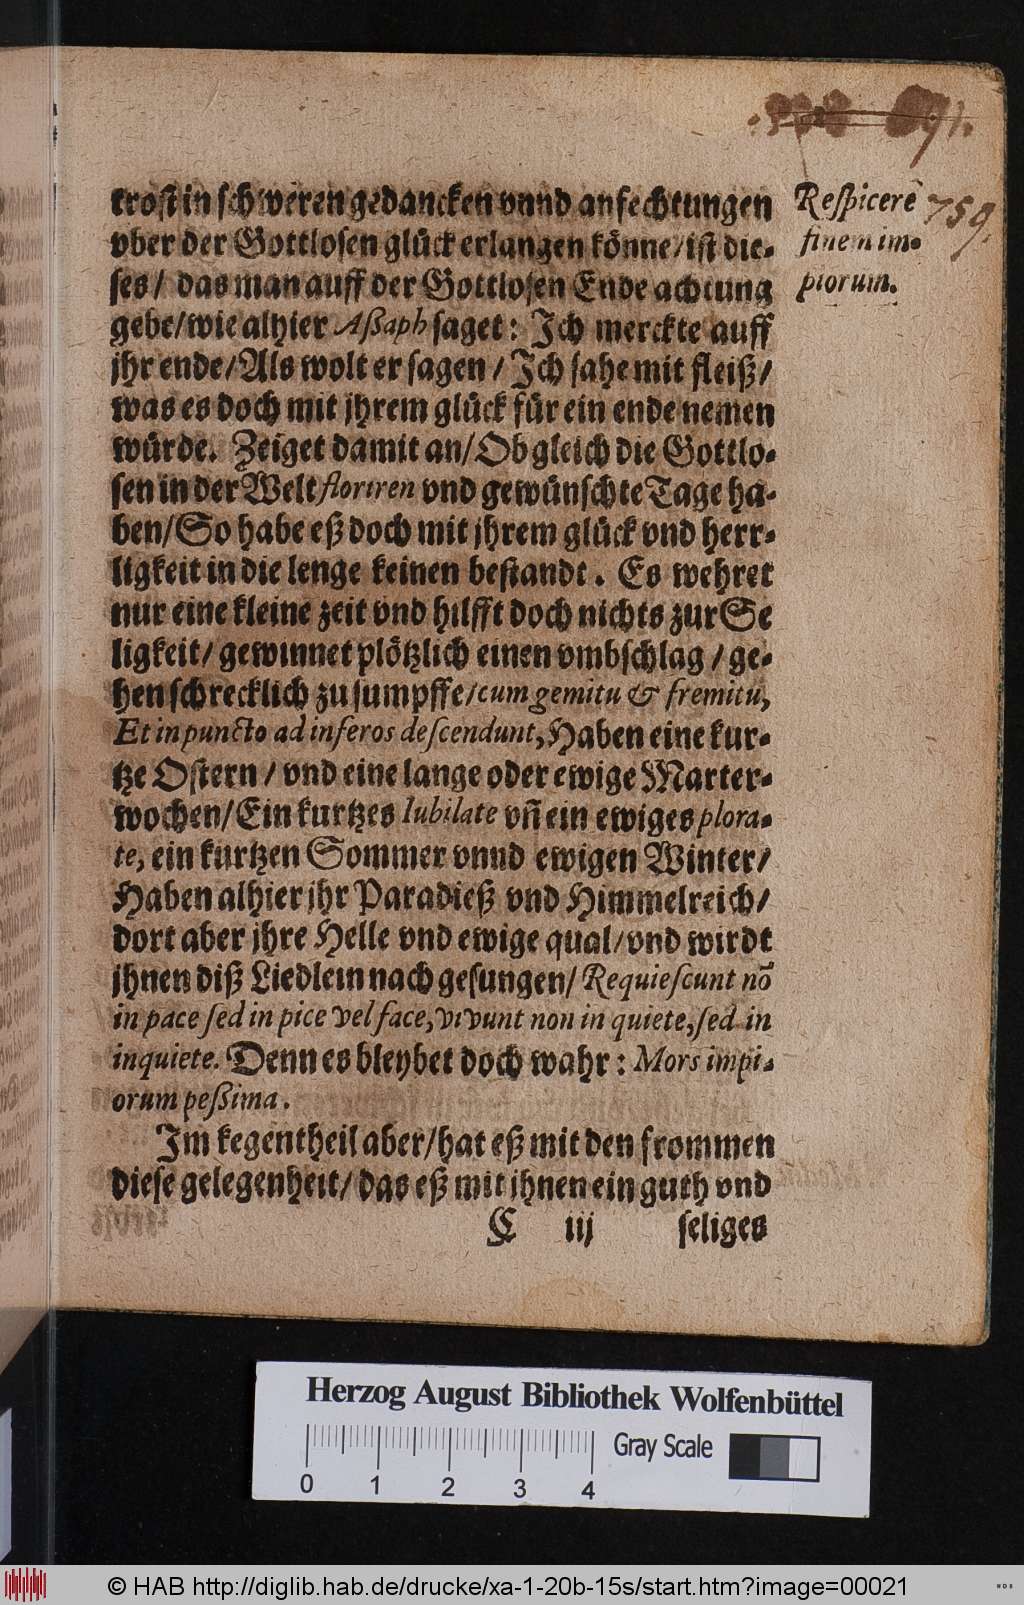 891.
759.
trost in schweren gedancken vnnd anfechtungen
vber der Gottlosen glück erlangen könne/ist die-
ses/ das man auff der Gottlosen Ende achtung
gebe/wie alhier Aßaph saget: Ich merckte auff
jhr ende/Als wolt er sagen/Ich sahe mit fleiß/
was es doch mit jhrem glück für ein ende nemen
würde. Zeiget damit an/Ob gleich die Gottlo-
sen in der Welt floriren vnd gewünschte Tage ha-
ben/So habe eß doch mit jhrem glück vnd herr-
ligkeit in die lenge keinen bestandt. Es wehret
nur eine kleine zeit vnd hilfft doch nichts zur Se
ligkeit/ gewinnet plötzlich einen vmbschlag/ge-
hen schrecklich zu sumpffe/cum gemitu & fremitu,
Et in puncto ad inferos descendunt, Haben eine kur-
tze Ostern/vnd eine lange oder ewige Marter-
wochen/Ein kurtzes Iubilate vñ ein ewiges plora-
te, ein kurtzen Sommer vnnd ewigen Winter/
Haben alhier jhr Paradieß vnd Himmelreich/
dort aber jhre Helle vnd ewige qual/vnd wirdt
jhnen diß Liedlein nach gesungen/Requiescunt nō
in pace sed in pice vel face, vivunt non in quiete, sed in
inquiete. Denn es bleybet doch wahr: Mors impi-
orum peßima.
Im kegentheil aber/hat eß mit den frommen
diese gelegenheit/das eß mit jhnen ein guth vnd
C iij seliges
Respicere
finem im-
piorum.
Herzog August Bibliothek Wolfenbüttel
Gray Scale
0 1 2 3 4
© HAB http://diglib.hab.de/drucke/xa-1-20b-15s/start.htm?image=00021